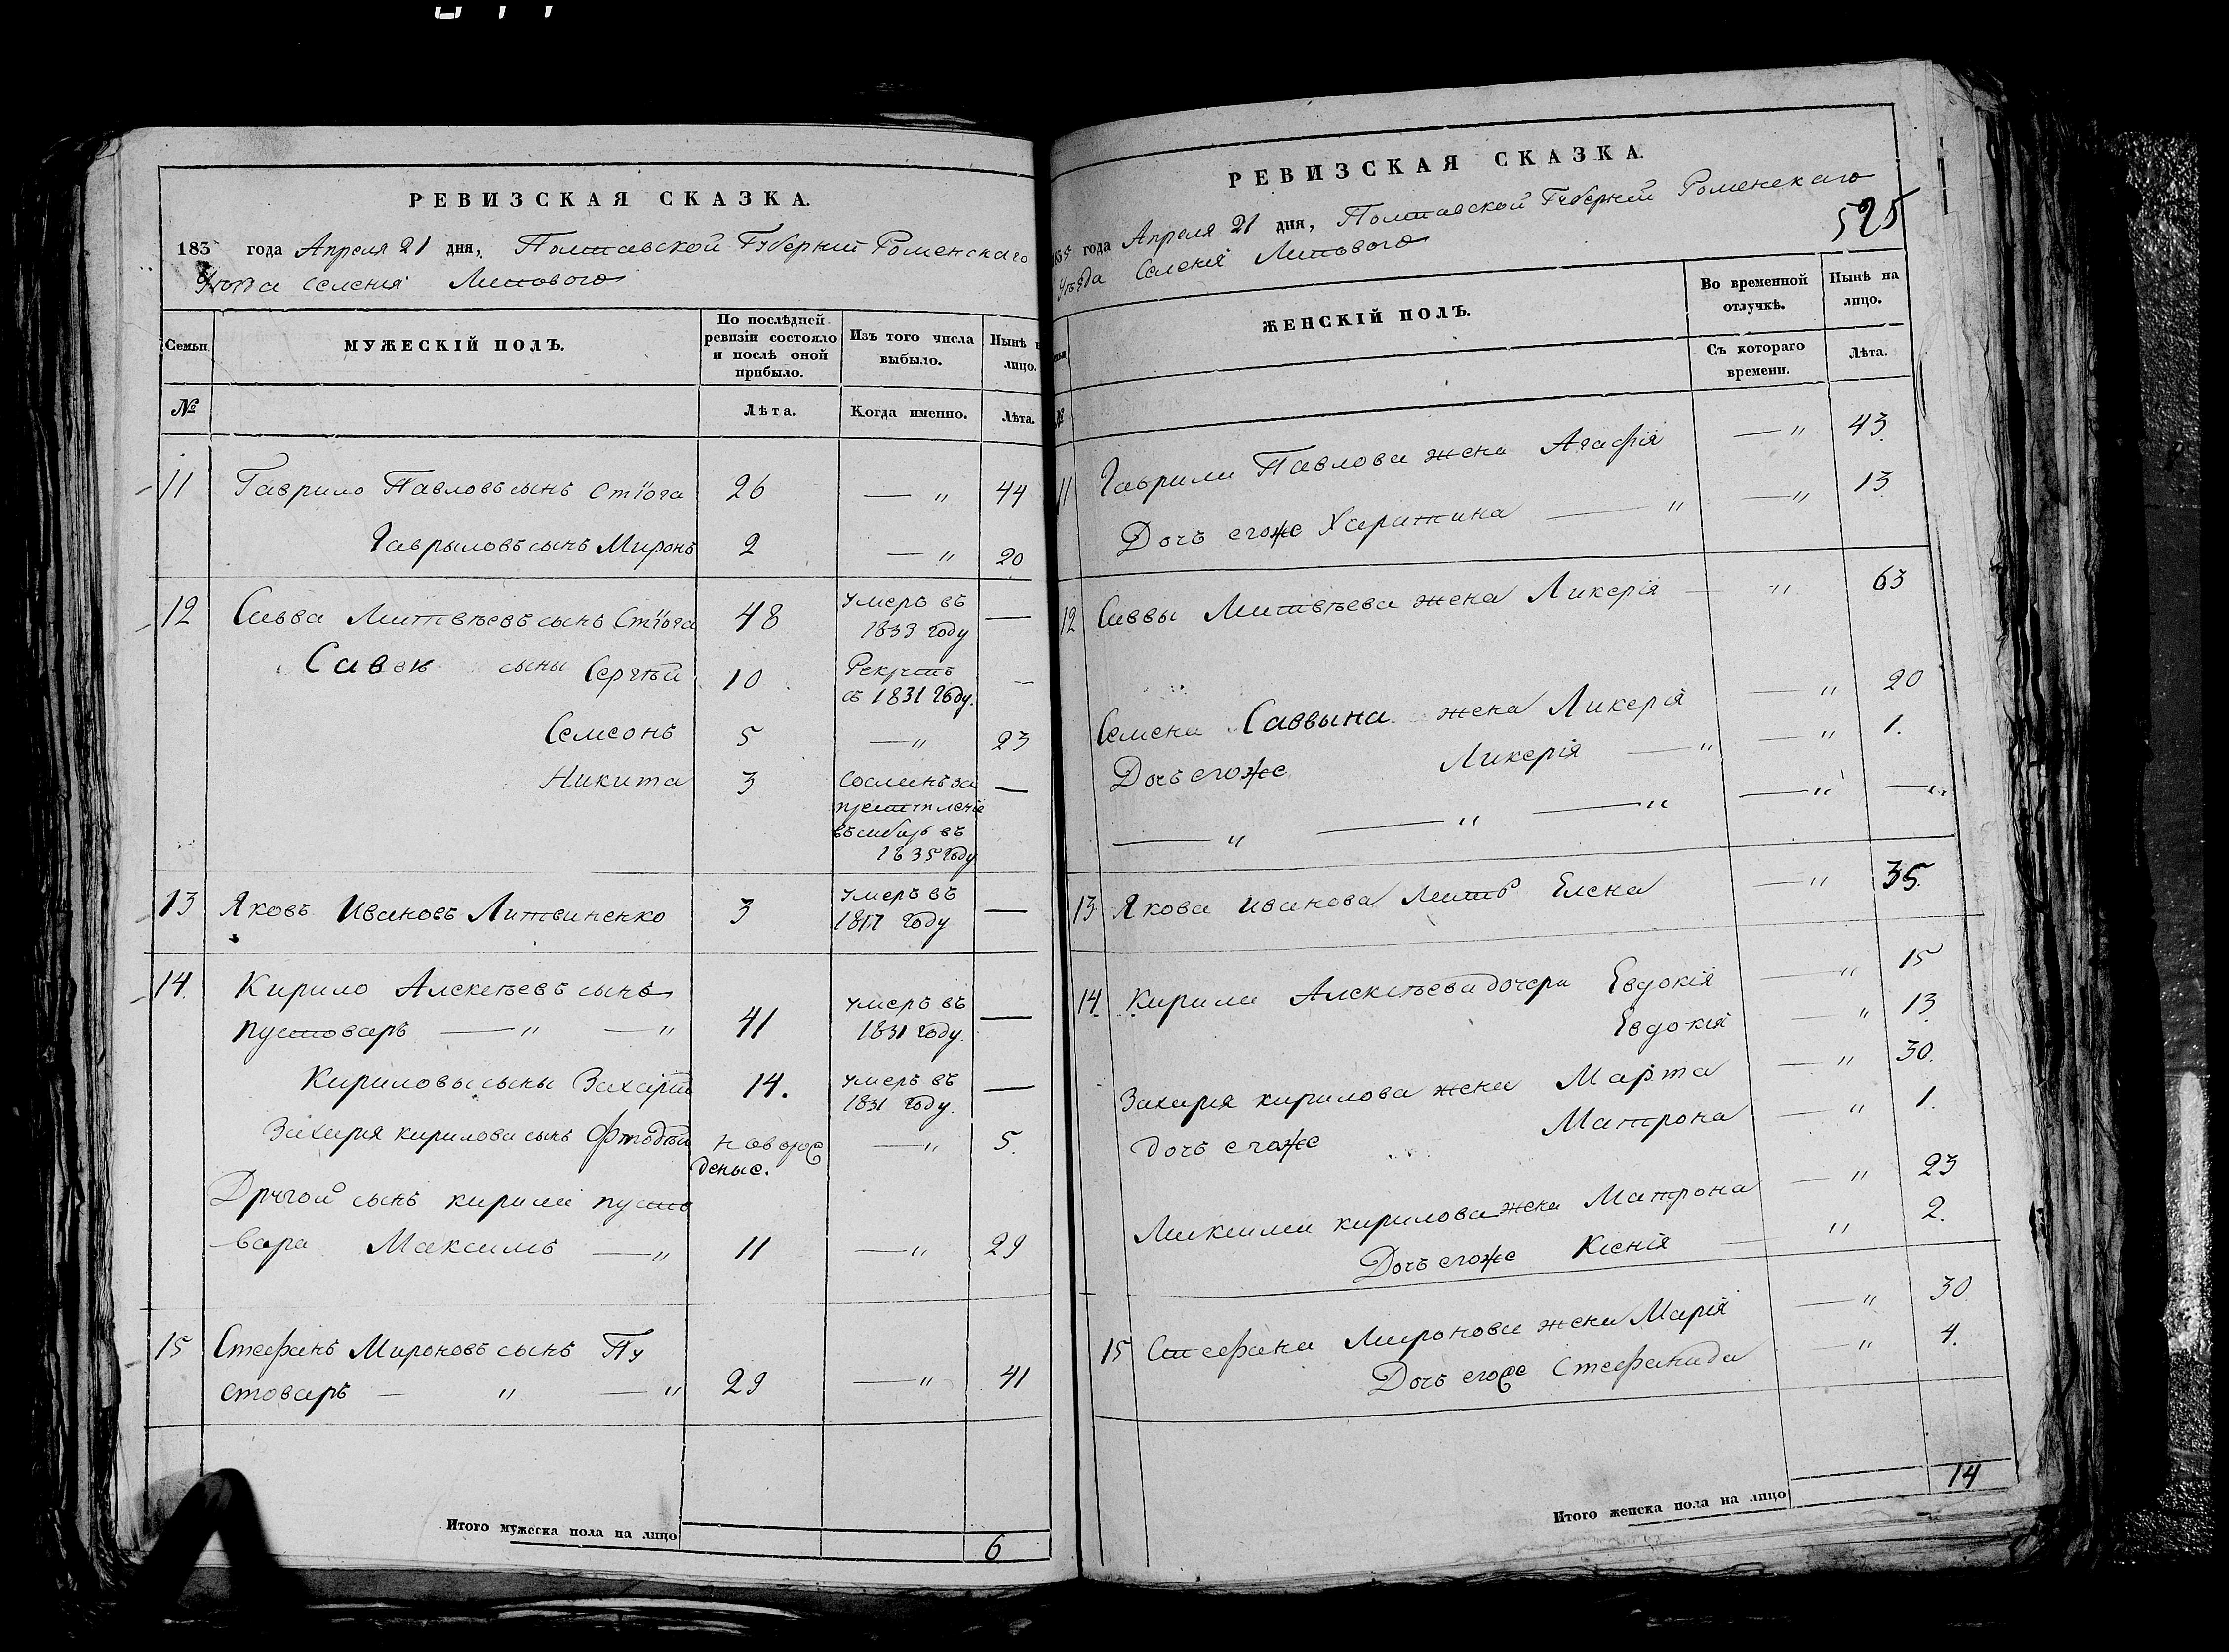 РЕВИЗСКАЯ СКАЗКА.
183 года Апреля 21 дня, Полтавской Губерніи Роменскаго
Уезда Селенія Липового
Семьи
МУЖЕСКІЙ ПОЛЪ.
По послѣдней
ревизіи состояло
и послѣ оной
прибыло.
Изъ того числа
выбыло.
Нынѣ н
лицо.
№
Лѣта.
Когда именно.
Лѣта.
11 Гаврило Павловъ сынъ 26 — " 44
Гаврыловъ сынъ Миронъ 2 — " 20
12 Савва Матвѣевъ сынъ 48 умеръ въ —
1833 году
Саввы сыны Сергѣй 10 Рекрутъ —
съ 1831 году.
Семеонъ 5 — " 23
Никита 3 Сосланъ за —
въ сибирь въ
1835 году
13 Яковъ Ивановъ Литвиненко 3 умеръ въ —
1817 году
14. Кирило Алексѣевъ сынъ
пустоваръ — " — " 41 умеръ въ —
1831 году.
Кириловы сыны Захарій 14. умеръ въ —
1831 году.
Захарія кирилова сынъ новорож 5.
— "
деные.
Другой сынъ кирила пусто
вара Максимъ — " 11 — " 29
15 Стефанъ Мироновъ сынъ Пу
стоваръ — " — " 29 — " 41
Итого мужеска пола на лицо 6
РЕВИЗСКАЯ СКАЗКА.
1835 года Апреля 21 дня, Полтавской Губерніи Роменскаго
525
Уѣзда Селенія Липового
ЖЕНСКІЙ ПОЛЪ.
Во временной
отлучкѣ.
Нынѣ на
лицо.
Съ котораго
времени.
Лѣта.
№
11 Гаврила Павлова жена Агафія — " 43.
Дочь егоже Харитина — " — " 13
12 Саввы Матвѣева жена Ликерія — " 63
Семена Саввына жена Ликерія — " 20
Дочь егоже Ликерія — " — " 1.
— " — " — " — " — "
13 Якова Иванова Мать Елена — " 35.
14. Кирила Алексѣева дочери Евдокія — " 15
Евдокія — " 13.
Захарія кирилова жена Марта — " 30.
дочь егоже Матрона — " 1.
Максима кирилова жена Матрона — " 23
Дочь егоже Ксенія — " 2.
15 Стефана Миронова жена Марія — " 30
Дочь егоже Стефанида — " 4.
Итого женска пола на лицо 14